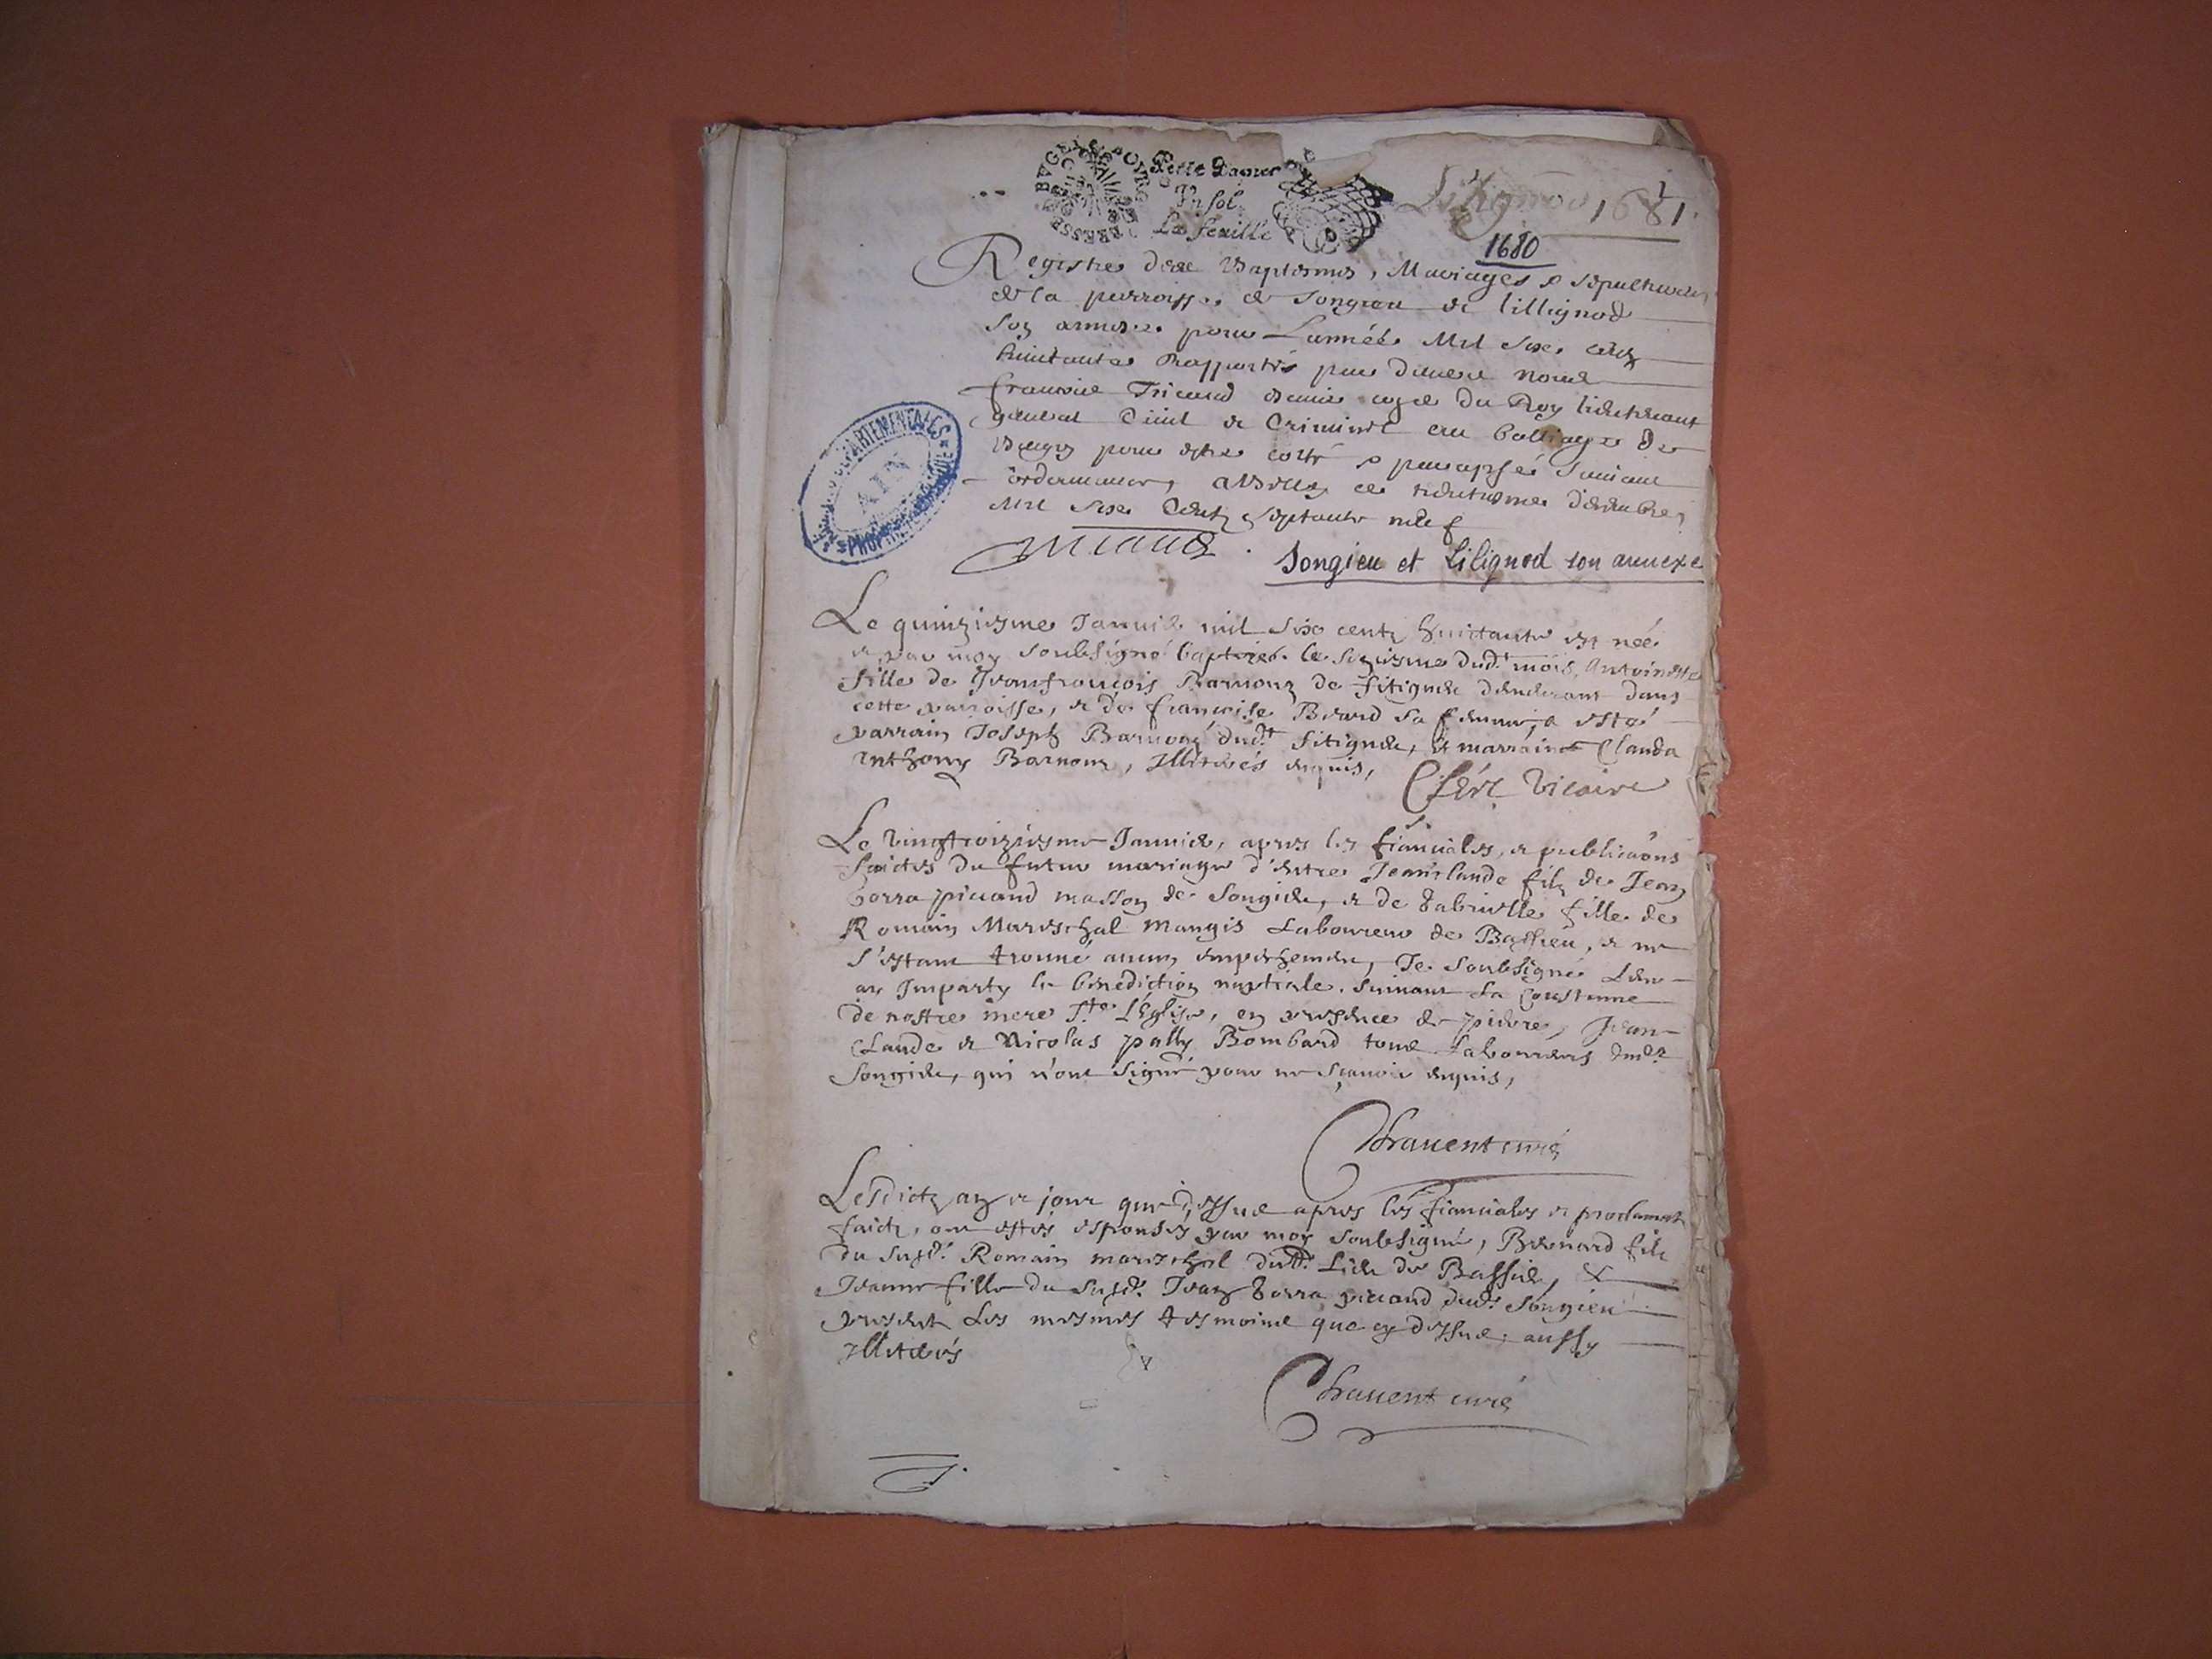 BVGEY POVR BRESSE
Pette Papier
Un sol
La feuille
Lilignod 1681
1680
Registre des Baptesmes, Mariages & sepultures
de la parroisse de Songieu et lillignod
son annexe pour L'année Mil Six centz
huictante Rapportés par devant nous
françois Tricaud escuier coner du Roy lieutenant
general Civil et Criminel au balliage de
Beugey pour estre cotté & paraphée suivant
ordonnance, a Belley ce decembre
Mil Six Centz septante neuf
Tricaud
Songieu et Lilignod son annexe
ARCHIVES DÉPARTEMENTALES
AIN
PROPRIÉTÉ PUBLIQUE
Le quinziesme Janvier mil six centz huictante est née
et par moy soubsigné baptisée le seziesme dud.t mois, Antoinette
fille de Jeanfrançois Barnoux de fitignieu demeurant dans
cette parroisse, et de françoise Beard sa femme, a esté
parrain Joseph Barnoux dud.t fitignieu, et marraine Clauda
Anthony Barnoux, Illiterés enquis, vicaire
Le vingttroiziesme Janvier, apres les fiancailes, et publicaons
faictes du futur mariage d'entre Jeanclaude filz de Jean
borra picand masson de Songieu, et de Gabrielle fille de
Romain Mareschal Mangis Laboureur de Bassieu, et ne
s'estant trouvé aucun empechement, Je Soubsigné Leur
ay Imparty la benediction nuptiale, suivant la coustume
de nostre mere S.te L'Eglise, en presence de pierre, Jean-
Claude et Nicolas pally Bombard tous Laboureurs dud.t
Songieu, qui n'ont signé pour ne sçavoir enquis,
Chavent curé
Lesdictz an et jour que dessus apres les fiancailes et proclamat.
faictz, ont estés espousés par moy soubsigné, Bernard filz
du susd.t Romain mareschal dud.t Lieu de Bassieu, &
Jeanne fille du susd.t Jean borra picand dud.t Songieu
presentz Les mesmes tesmoins que cy dessus, aussy
Illiterés
Chavent curé